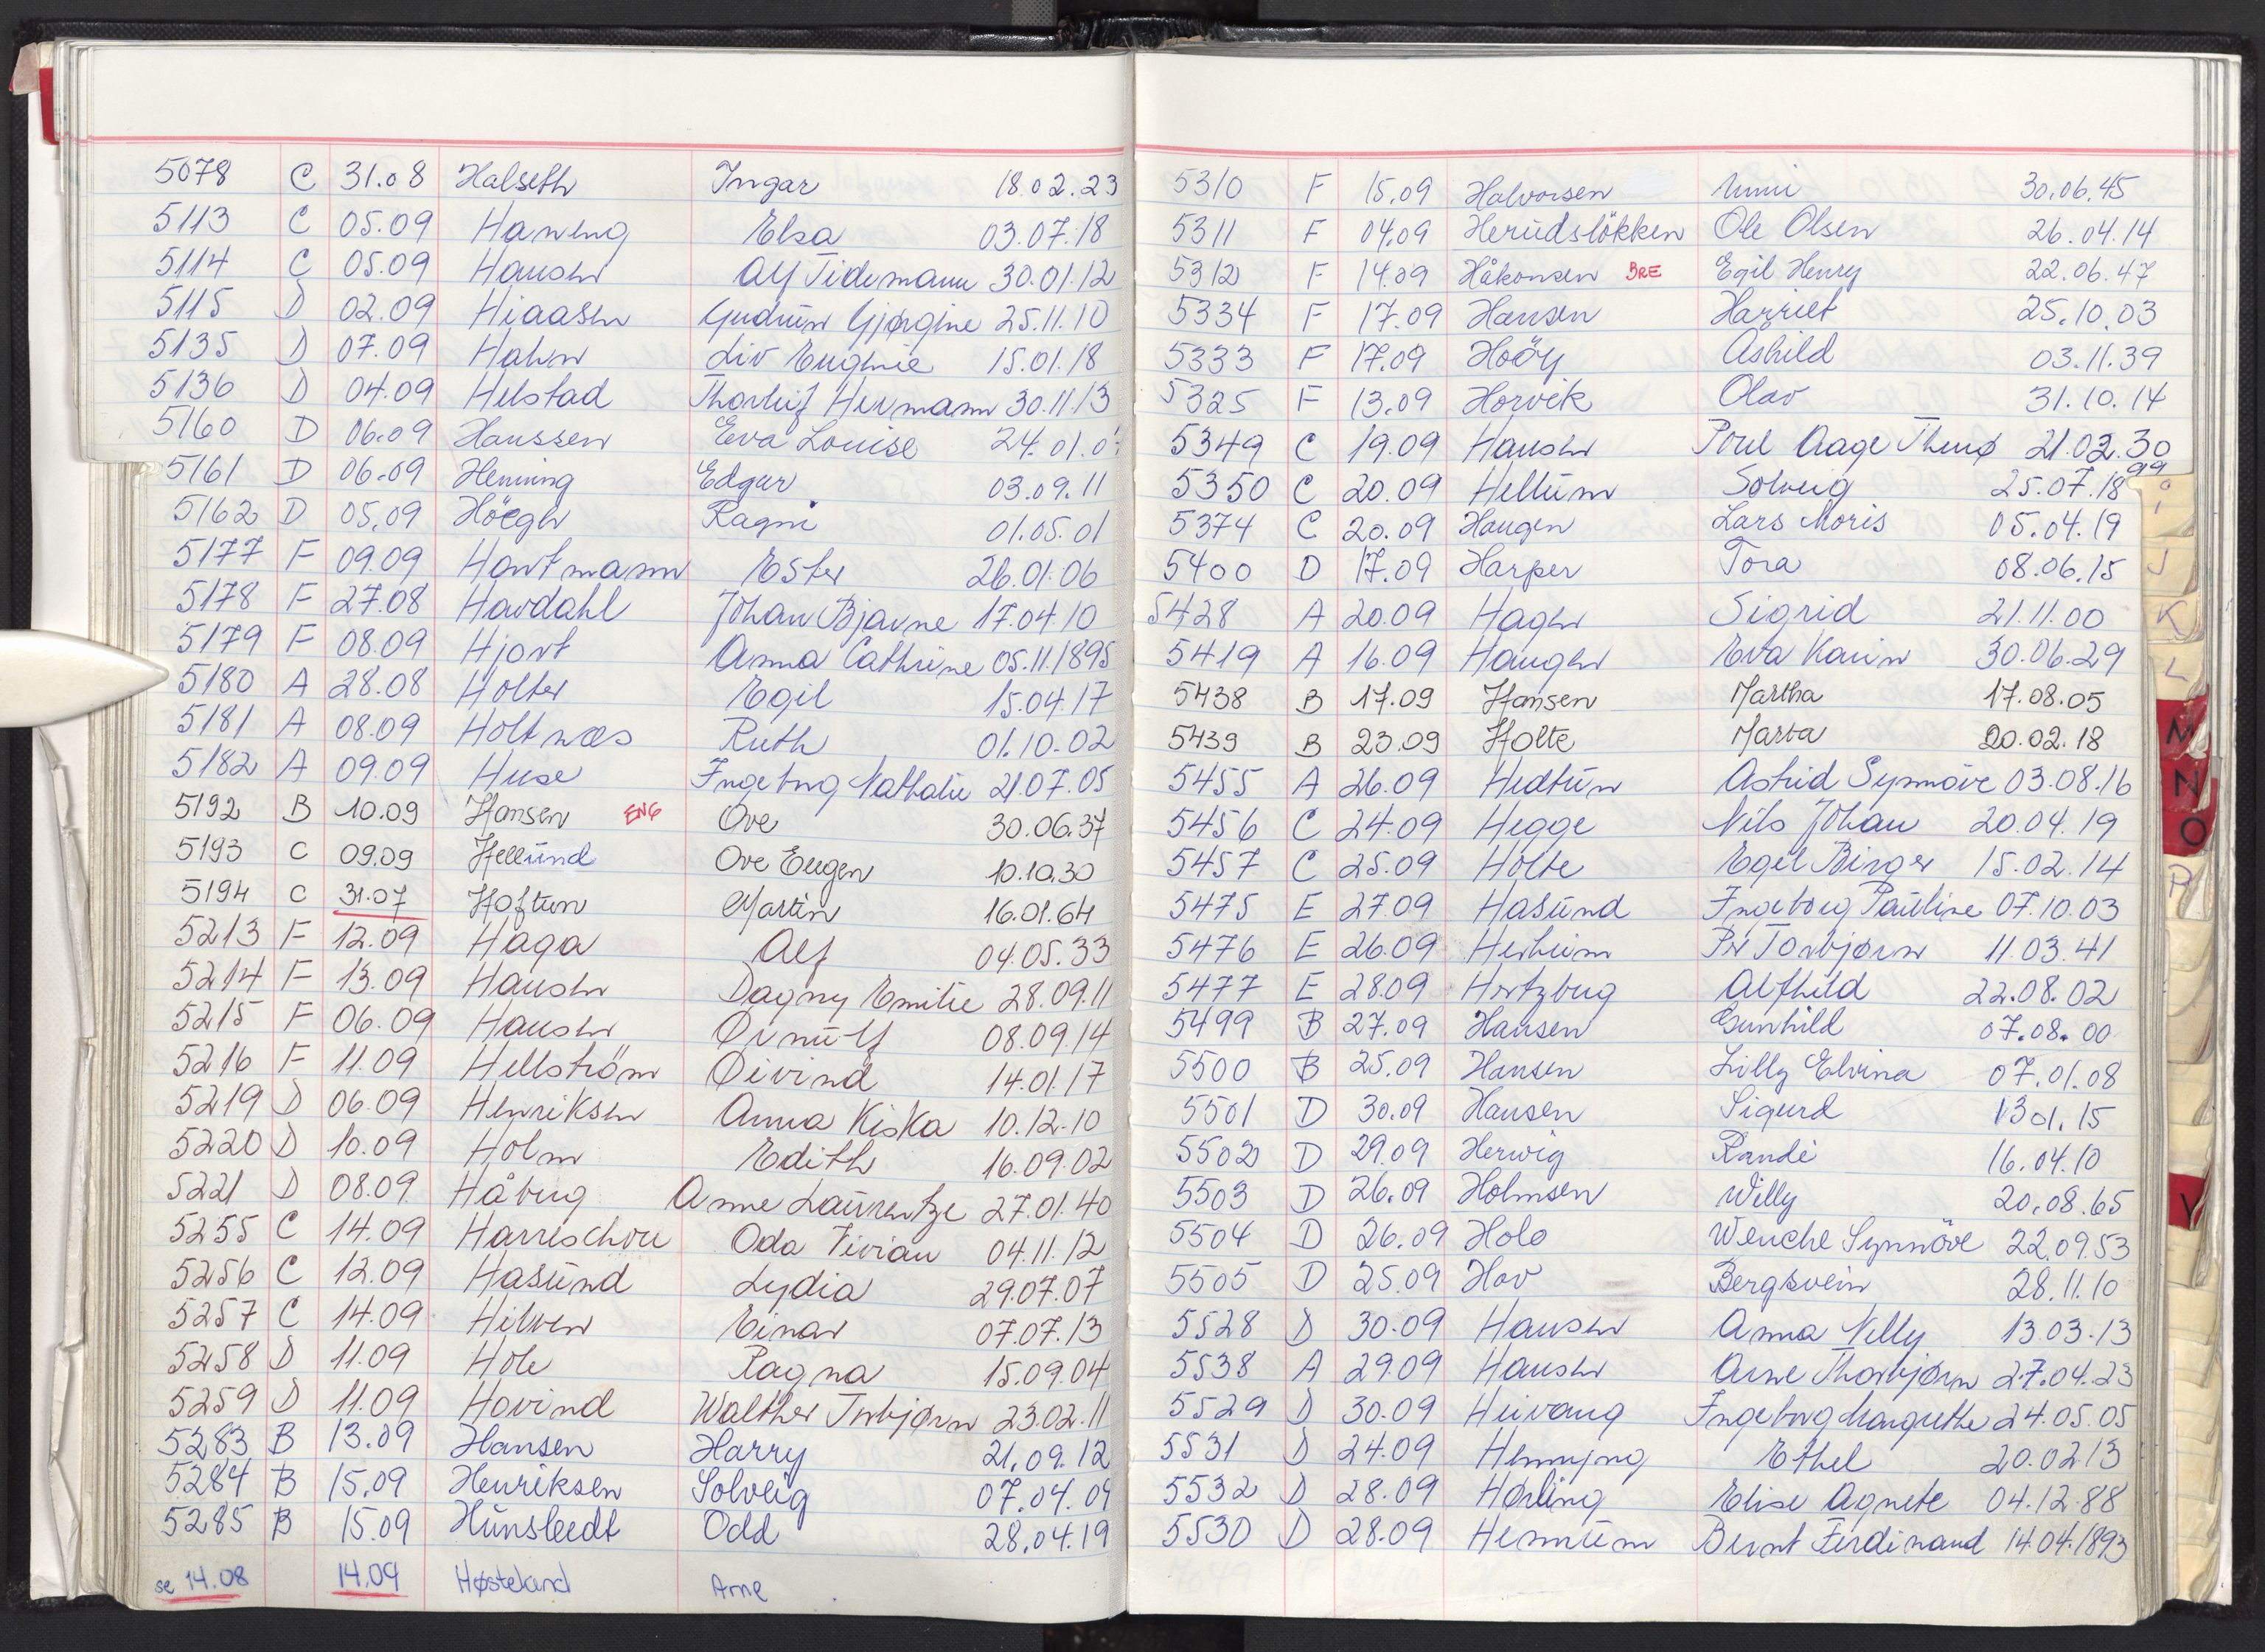 5078 C 31.08 Halseth Ingar 18.02.23
5113 C 05.09 Haneng Elsa 03.07.18
5114 C 05.09 Hansen Alf Tidemann 30.01.12
5115 D 02.09 Hiaasen Gudrun Gjørgine 25.11.10
5135 D 07.09 Hahn Liv Eugenie 15.01.18
5136 D 04.09 Helstad Thorleif Hermann 30.11.13
5160 D 06.09 Hanssen Eva Louise 24.01.0
5161 D 06.09 Henning Edgar 03.09.11
5162 D 05.09 Höegh Ragni 01.05.01
5177 F 09.09 Hartmann Ester 26.01.06
5178 F 27.08 Havdahl Johan Bjarne 17.04.10
5179 F 08.09 Hjort Anna Cathrine 05.11.1895
5180 A 28.08 Holter Egil 15.04.17
5181 A 08.09 Holtnæs Ruth 01.10.02
5182 A 09.09 Huse Ingeborg Nathalie 21.07.05
5192 B 10.09 Hansen ENG Ove 30.06.37
5193 C 09.09 Hellund Ove Eugen 10.10.30
5194 C 31.07 Hoftun Martin 16.01.64
5213 F 12.09 Haga Alf 04.05.33
5214 F 13.09 Hansen Dagny Emilie 28.09.11
5215 F 06.09 Hansen Ørnulf 08.09.14
5216 F 11.09 Hellström Øivind 14.01.17
5219 D 06.09 Henriksen Anna Kiska 10.12.10
5220 D 10.09 Holm Edith 16.09.02
5221 D 08.09 Håberg Anne Laurentze 27.01.40
5255 C 14.09 Harreschou Oda Vivian 04.11.12
5256 C 12.09 Hasund Lydia 29.07.07
5257 C 14.09 Hilven Einar 07.07.13
5258 D 11.09 Hole Ragna 15.09.04
5259 D 11.09 Hovind Walther Torbjørn 23.02.11
5283 B 13.09 Hansen Harry 21.09.12
5284 B 15.09 Henriksen Solveig 07.04.09
5285 B 15.09 Hunsleedt Odd 28.04.19
se 14.08 14.09 Høsteland Arne
5310 F 15.09 Halvorsen Unni 30.06.45
5311 F 04.09 Herudslökken Ole Olsen 26.04.14
5312 F 14.09 Håkonsen BRE Egil Henry 22.06.47
5334 F 17.09 Hansen Harriet 25.10.03
5333 F 17.09 Hoöy Åshild 03.11.39
5325 F 13.09 Horvik Olav 31.10.14
5349 C 19.09 Hansen Poul Aage Thenø 21.02.30
5350 C 20.09 Hellum Solveig 25.07.1899
5374 C 20.09 Haugen Lars Moris 05.04.19
5400 D 17.09 Harper Tora 08.06.15
5428 A 20.09 Hagen Sigrid 21.11.00
5419 A 16.09 Haugen Eva Karin 30.06.29
5438 B 17.09 Hansen Martha 17.08.05
5439 B 23.09 Holte Marta 20.02.18
5455 A 26.09 Hedtun Astrid Synnöve 03.08.16
5456 C 24.09 Hegge Nils Johan 20.04.19
5457 C 25.09 Holte Egil Birger 15.02.14
5475 E 27.09 Hasund Ingeborg Pauline 07.10.03
5476 E 26.09 Herheim Per Torbjørn 11.03.41
5477 E 28.09 Hertzberg Alfhild 22.08.02
5499 B 27.09 Hansen Gunhild 07.08.00
5500 B 25.09 Hansen Lilly Elvina 07.01.08
5501 D 30.09 Hansen Sigurd 13.01.15
5502 D 29.09 Herwig Randi 16.04.10
5503 D 26.09 Holmsen Willy 20.08.65
5504 D 26.09 Holo Wenche Synnöve 22.09.53
5505 D 25.09 Hov Bergsvein 28.11.10
5528 D 30.09 Hansen Anna Nelly 13.03.13
5538 A 29.09 Hansen Arne Thorbjørn 27.04.23
5529 D 30.09 Heivang Ingeborg Margrethe 24.05.05
5531 D 24.09 Hennyng Ethel 20.02.13
5532 D 28.09 Hørling Elise Agnete 04.12.88
5530 D 28.09 Hennum Bernt Ferdinand 14.04.1893
I
J
K
L
M
N
O
P
V